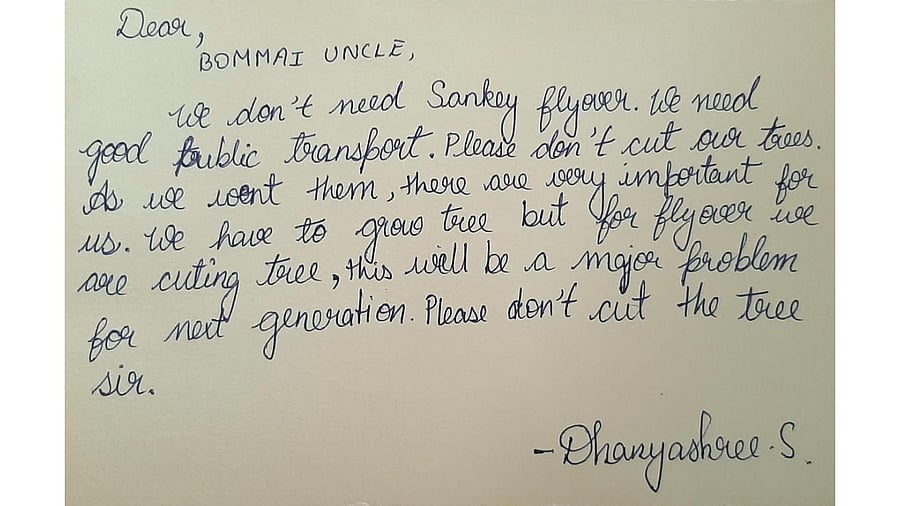 Dear,
BOMMAI UNCLE,
We don't need Sankey flyover. We need
good public transport. Please don't cut our trees.
As we want them, there are very important for
us. We have to grow tree but for flyover we
are cuting tree, this will be a major problem
for next generation. Please don't cut the tree
sir.
- Dhanyashree. S.